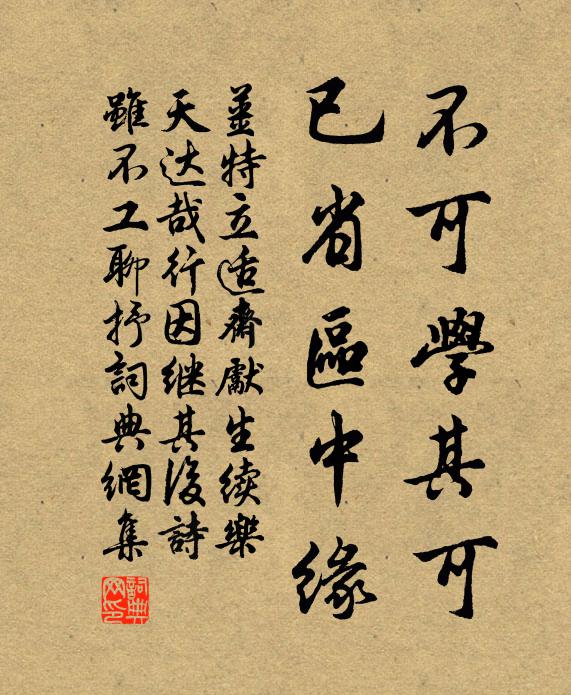 不可學其可
已省區中緣
姜特立适齋獻生续樂
天达哉行因继其後詩
雖不工聊抒詞典網集
詞典网印